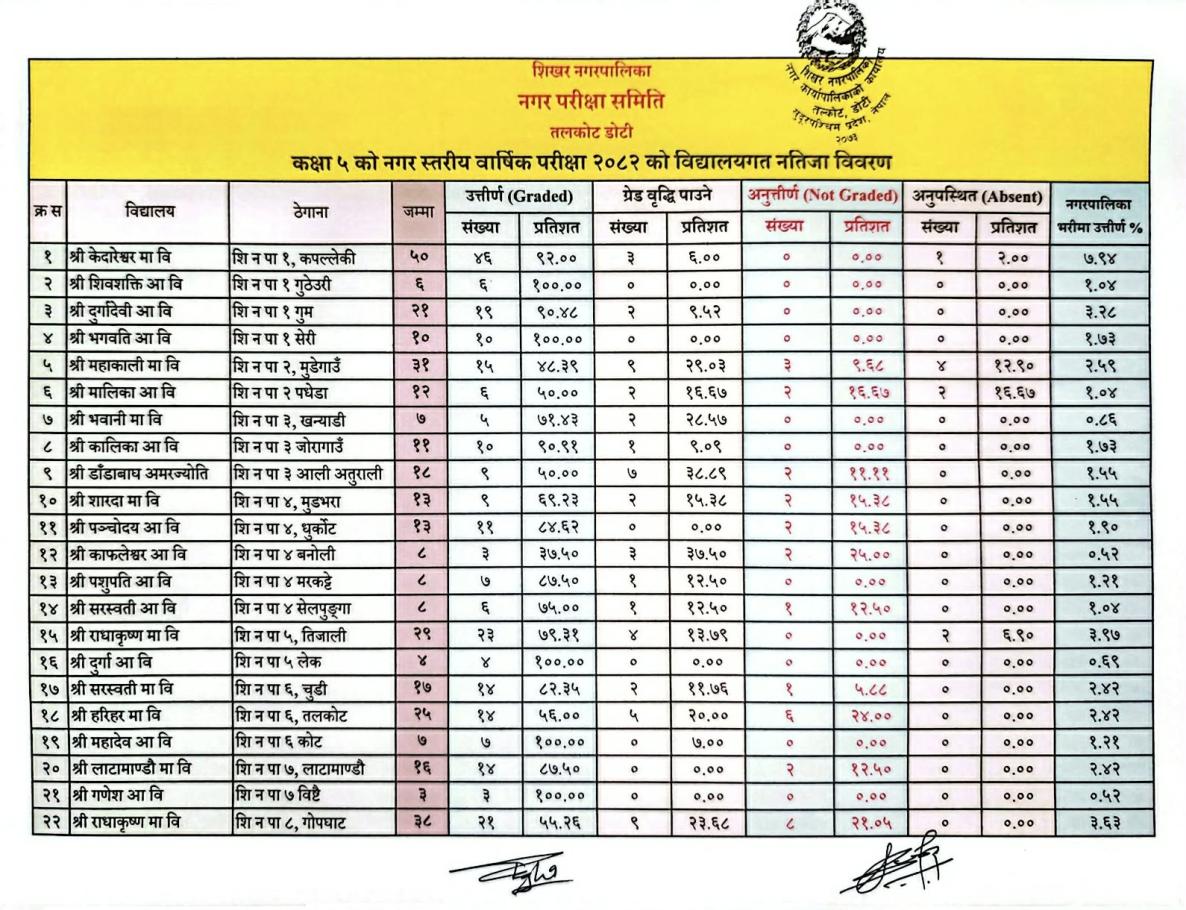 शिखर नगरपालिका
नगर कार्यपालिकाको कार्यालय
तल्कोट, डोटी
सुदूरपश्चिम प्रदेश, नेपाल
२०७३
शिखर नगरपालिका
नगर परीक्षा समिति
तलकोट डोटी
कक्षा ५ को नगर स्तरीय वार्षिक परीक्षा २०८२ को विद्यालयगत नतिजा विवरण
क्र स विद्यालय ठेगाना जम्मा उत्तीर्ण (Graded) ग्रेड वृद्धि पाउने अनुत्तीर्ण (Not Graded) अनुपस्थित (Absent) नगरपालिका भरीमा उत्तीर्ण %
संख्या प्रतिशत संख्या प्रतिशत संख्या प्रतिशत संख्या प्रतिशत
१ श्री केदारेश्वर मा वि शि न पा १, कपल्लेकी ५० ४६ ९२.०० ३ ६.०० ० ०.०० १ २.०० ७.९४
२ श्री शिवशक्ति आ वि शि न पा १ गुठेउरी ६ ६ १००.०० ० ०.०० ० ०.०० ० ०.०० १.०४
३ श्री दुर्गादेवी आ वि शि न पा १ गुम २१ १९ ९०.४८ २ ९.५२ ० ०.०० ० ०.०० ३.२८
४ श्री भगवति आ वि शि न पा १ सेरी १० १० १००.०० ० ०.०० ० ०.०० ० ०.०० १.७३
५ श्री महाकाली मा वि शि न पा २, मुडेगाउँ ३१ १५ ४८.३९ ९ २९.०३ ३ ९.६८ ४ १२.९० २.५९
६ श्री मालिका आ वि शि न पा २ पधेडा १२ ६ ५०.०० २ १६.६७ २ १६.६७ २ १६.६७ १.०४
७ श्री भवानी मा वि शि न पा ३, खन्याडी ७ ५ ७१.४३ २ २८.५७ ० ०.०० ० ०.०० ०.८६
८ श्री कालिका आ वि शि न पा ३ जोरागाउँ ११ १० ९०.९१ १ ९.०९ ० ०.०० ० ०.०० १.७३
९ श्री डाँडाबाघ अमरज्योति शि न पा ३ आली अतुराली १८ ९ ५०.०० ७ ३८.८९ २ ११.११ ० ०.०० १.५५
१० श्री शारदा मा वि शि न पा ४, मुडभरा १३ ९ ६९.२३ २ १५.३८ २ १५.३८ ० ०.०० १.५५
११ श्री पञ्चोदय आ वि शि न पा ४, धुर्कोट १३ ११ ८४.६२ ० ०.०० २ १५.३८ ० ०.०० १.९०
१२ श्री काफलेश्वर आ वि शि न पा ४ बनोली ८ ३ ३७.५० ३ ३७.५० २ २५.०० ० ०.०० ०.५२
१३ श्री पशुपति आ वि शि न पा ४ मरकट्टे ८ ७ ८७.५० १ १२.५० ० ०.०० ० ०.०० १.२१
१४ श्री सरस्वती आ वि शि न पा ४ सेलपुङ्गा ८ ६ ७५.०० १ १२.५० १ १२.५० ० ०.०० १.०४
१५ श्री राधाकृष्ण मा वि शि न पा ५, तिजाली २९ २३ ७९.३१ ४ १३.७९ ० ०.०० २ ६.९० ३.९७
१६ श्री दुर्गा आ वि शि न पा ५ लेक ४ ४ १००.०० ० ०.०० ० ०.०० ० ०.०० ०.६९
१७ श्री सरस्वती मा वि शि न पा ६, चुडी १७ १४ ८२.३५ २ ११.७६ १ ५.८८ ० ०.०० २.४२
१८ श्री हरिहर मा वि शि न पा ६, तलकोट २५ १४ ५६.०० ५ २०.०० ६ २४.०० ० ०.०० २.४२
१९ श्री महादेव आ वि शि न पा ६ कोट ७ ७ १००.०० ० ७.०० ० ०.०० ० ०.०० १.२१
२० श्री लाटामाण्डौ मा वि शि न पा ७, लाटामाण्डौ १६ १४ ८७.५० ० ०.०० २ १२.५० ० ०.०० २.४२
२१ श्री गणेश आ वि शि न पा ७ विष्टै ३ ३ १००.०० ० ०.०० ० ०.०० ० ०.०० ०.५२
२२ श्री राधाकृष्ण मा वि शि न पा ८, गोपघाट ३८ २१ ५५.२६ ९ २३.६८ ८ २१.०५ ० ०.०० ३.६३